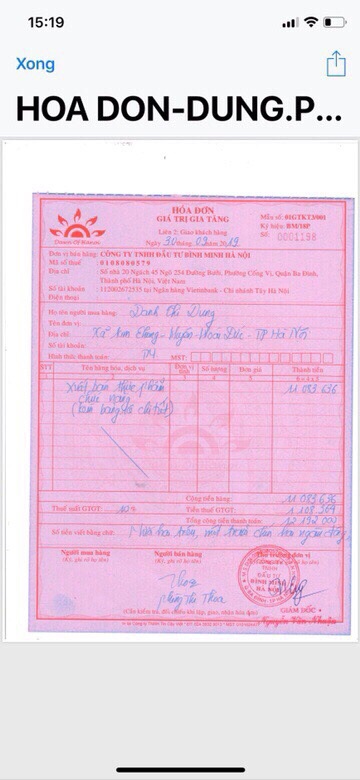 15:19
Xong
HOA DON-DUNG.P...
HÓA ĐƠN
GIÁ TRỊ GIA TĂNG
Liên 2: Giao khách hàng
Ngày 30 tháng 03 năm 2019
Mẫu số: 01GTKT3/001
Ký hiệu: BM/18P
Số: 0001198
Đơn vị bán hàng: CÔNG TY TNHH ĐẦU TƯ BÌNH MINH HÀ NỘI
Mã số thuế : 0108080579
Địa chỉ : Số nhà 20 Ngách 45 Ngõ 254 Đường Bưởi, Phường Cống Vị, Quận Ba Đình,
Thành phố Hà Nội, Việt Nam
Số tài khoản : 112002672535 tại Ngân hàng Vietinbank - Chi nhánh Tây Hà Nội
Điện thoại :
Họ tên người mua hàng: Danh Chi Dung
Tên đơn vị :
Địa chỉ: Xã Kim Chung - Hoài Đức - TP Hà Nội
Số tài khoản :
Hình thức thanh toán: TM MST:
STT Tên hàng hóa, dịch vụ Đơn vị tính Số lượng Đơn giá Thành tiền
1 2 3 4 5 6=4x5
Xuất bán thực phẩm 11 083 636
chức năng
(kèm bảng kê chi tiết)
Cộng tiền hàng: 11 083 636
Thuế suất GTGT: 10 % Tiền thuế GTGT: 1 108 364
Tổng cộng tiền thanh toán: 12 192 000
Số tiền viết bằng chữ: Mười hai triệu, một trăm chín hai ngàn đồng
Người mua hàng Người bán hàng Thủ trưởng đơn vị
(Ký, ghi rõ họ tên) (Ký, ghi rõ họ tên)
CÔNG TY
TNHH
ĐẦU TƯ
BÌNH MINH
HÀ NỘI
GIÁM ĐỐC
(Cần kiểm tra, đối chiếu khi lập, giao, nhận hóa đơn)